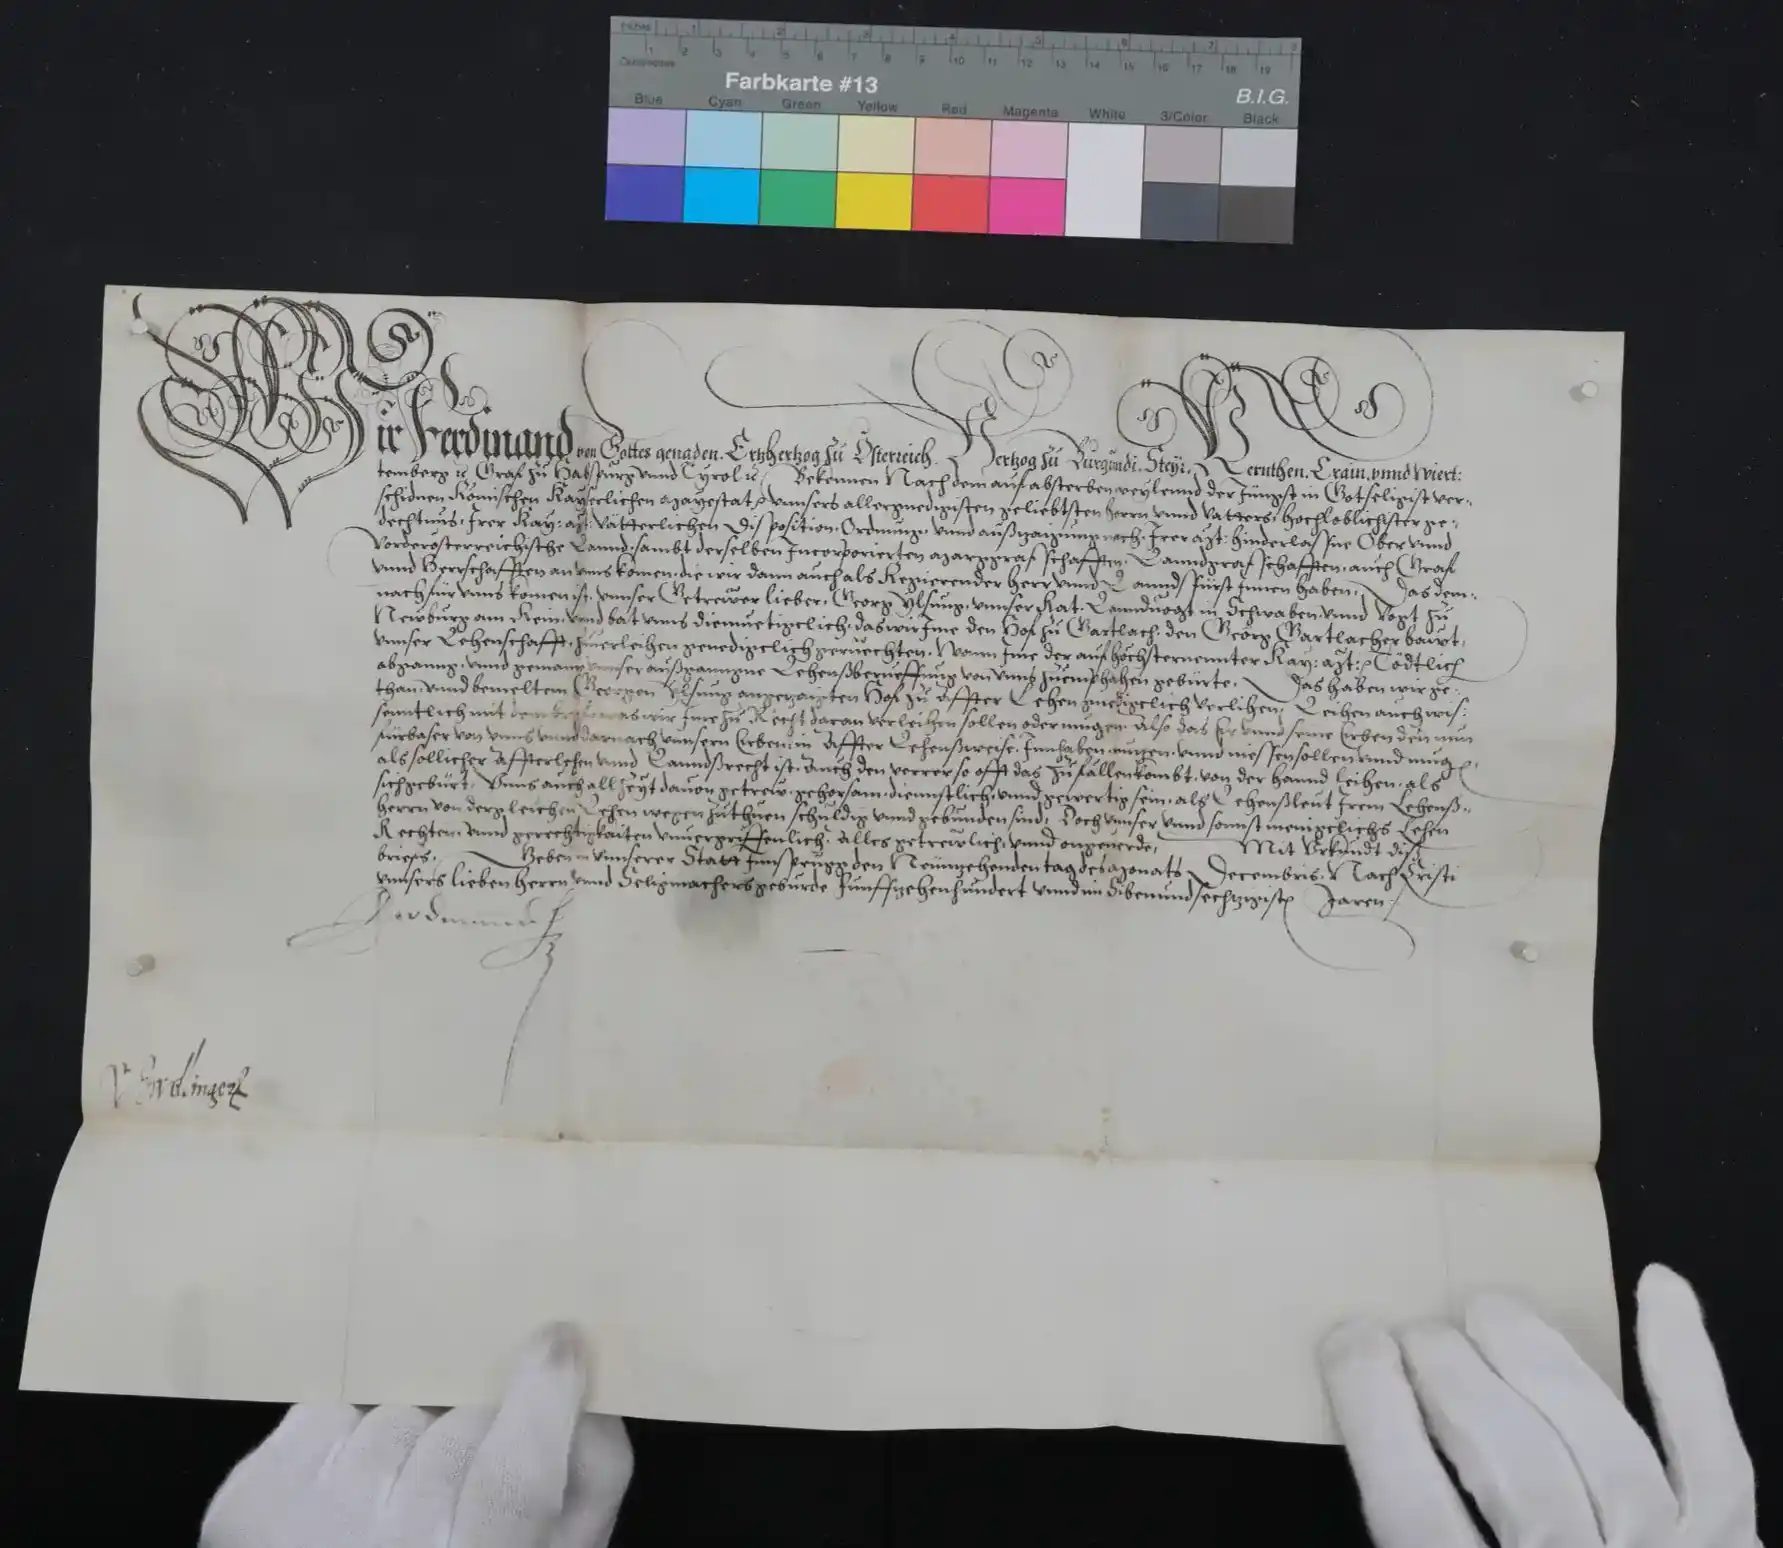 inches 1 2 3 4 5 6 7 8
Centimetres 1 2 3 4 5 6 7 8 9 10 11 12 13 14 15 16 17 18 19
Farbkarte #13
B.I.G.
Blue Cyan Green Yellow Red Magenta White 3/Color Black
Wir Ferdinand von Gottes genaden. Ertzhertzog zu Österreich. Hertzog zu Burgundi. Steyr. Kernthen. Crain. vnnd Wiert:
temberg ꝛc Graf zu Habspurg vnnd Tyrol ꝛc Bekennen Nach dem auf absterben weylennd der Jüngst in Gotseligist ver:
schidnen Römischen Kayserlichen Mayestat ꝛc vnnsers allergnedigisten geliebtsten herrn vnnd Vatters, hochloblichister ge:
dechtnus, Irer Kay: Mt: Vätterlichen Disposition, Ordnung, vnnd außzaigung nach, Irer Mt: hinderlassne Ober vnnd
Vorderösterreichische Lannd, sambt derselben Incorporierten Marggrafschafften, Lanndgrafschafften, auch Graf
vnnd Herrschafften an vnns komen, die wir dann auch als Regierender herr vnnd Lanndsfürst Innen haben, Das dem:
nach für vnns komen ist, vnnser Getrewer lieber, Georg Ylsung, vnnser Rat, Lanndtuogt in Schwaben, vnnd Vogt zu
Newburg am Rein, vnnd bat vnns diemuetigclich, das wir Ime den Hof zu Gartlach, den Georg Gartlacher bawt,
vnnser Lehenschafft, zuuerleihen genedigclich geruechten, Wann Ime der auf höchsternennter Kay: Mt: ꝛc Tödtlich
abganng, vnnd gemain vnnser außgangne Lehenßberueffung von vnns zuemphahen gebürte, Das haben wir ge:
than, vnnd bemeltem Georgen Ylsung angezaigten Hof zu Affter Lehen gnedigclich verlihen, Leihen auch wis:
senntlich mit dem brief, was wir Ime zu Recht daran verleihen sollen oder mugen, Also das Er vnnd seine Erben den nun
fürbaser von vnns vnnd darnach vnnsern Erben, in Affter Lehenßweise, Innhaben, nutzen, vnnd niessen sollen vnnd mugen,
als sollicher Affterlehen vnnd Lanndßrecht ist, Auch den verrer so offt das zufällen kombt, von der hannd leihen, als
sich gebürt, Vnns auch allzeyt dauon getrew, gehorsam, diennstlich, vnnd gewertig sein, als Lehenßleut Irem Lehenß:
herrn von dergleichen Lehen wegen zuthuen schuldig vnnd gebunden sind, Doch vnnser vnnd sonnst menigclichs Lehen
Rechten, vnnd gerechtigkaiten vnuergriffenlich, Alles getrewlich, vnnd ongeuerde, Mit Vrkundt diß
briefs, Geben in vnnserer Statt Innsprugg den Neünzehenden tag des Monats Decembris, Nach Cristi
vnnsers lieben herrn vnnd Seligmachers geburde Fünffzehenhundert vnnd im Sibenundsechtzigisten Jaren.
Ferdinand